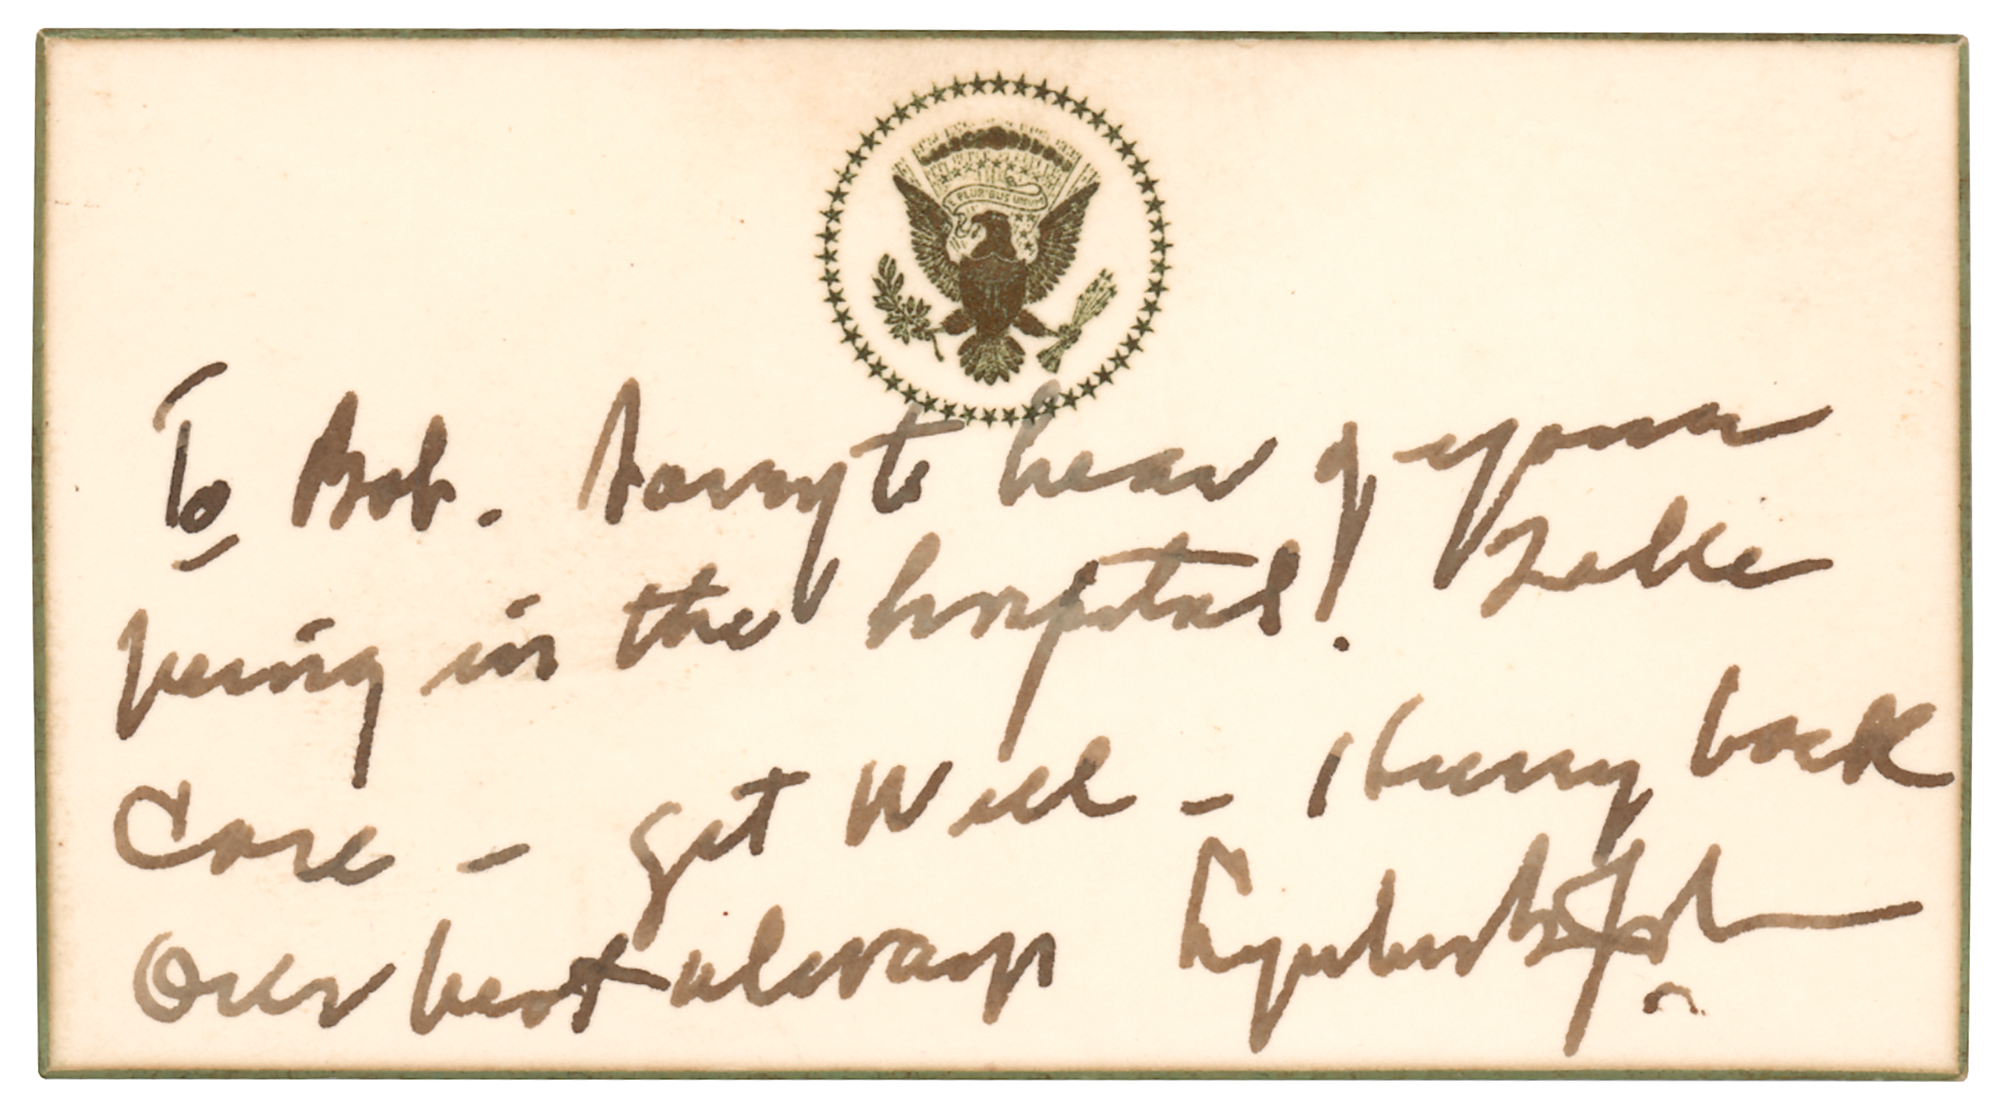 E PLURIBUS UNUM
To Bob. Sorry to hear of your
being in the hospital! Take
Care - get Well - & hurry back
Our best always Lyndon B Johnson